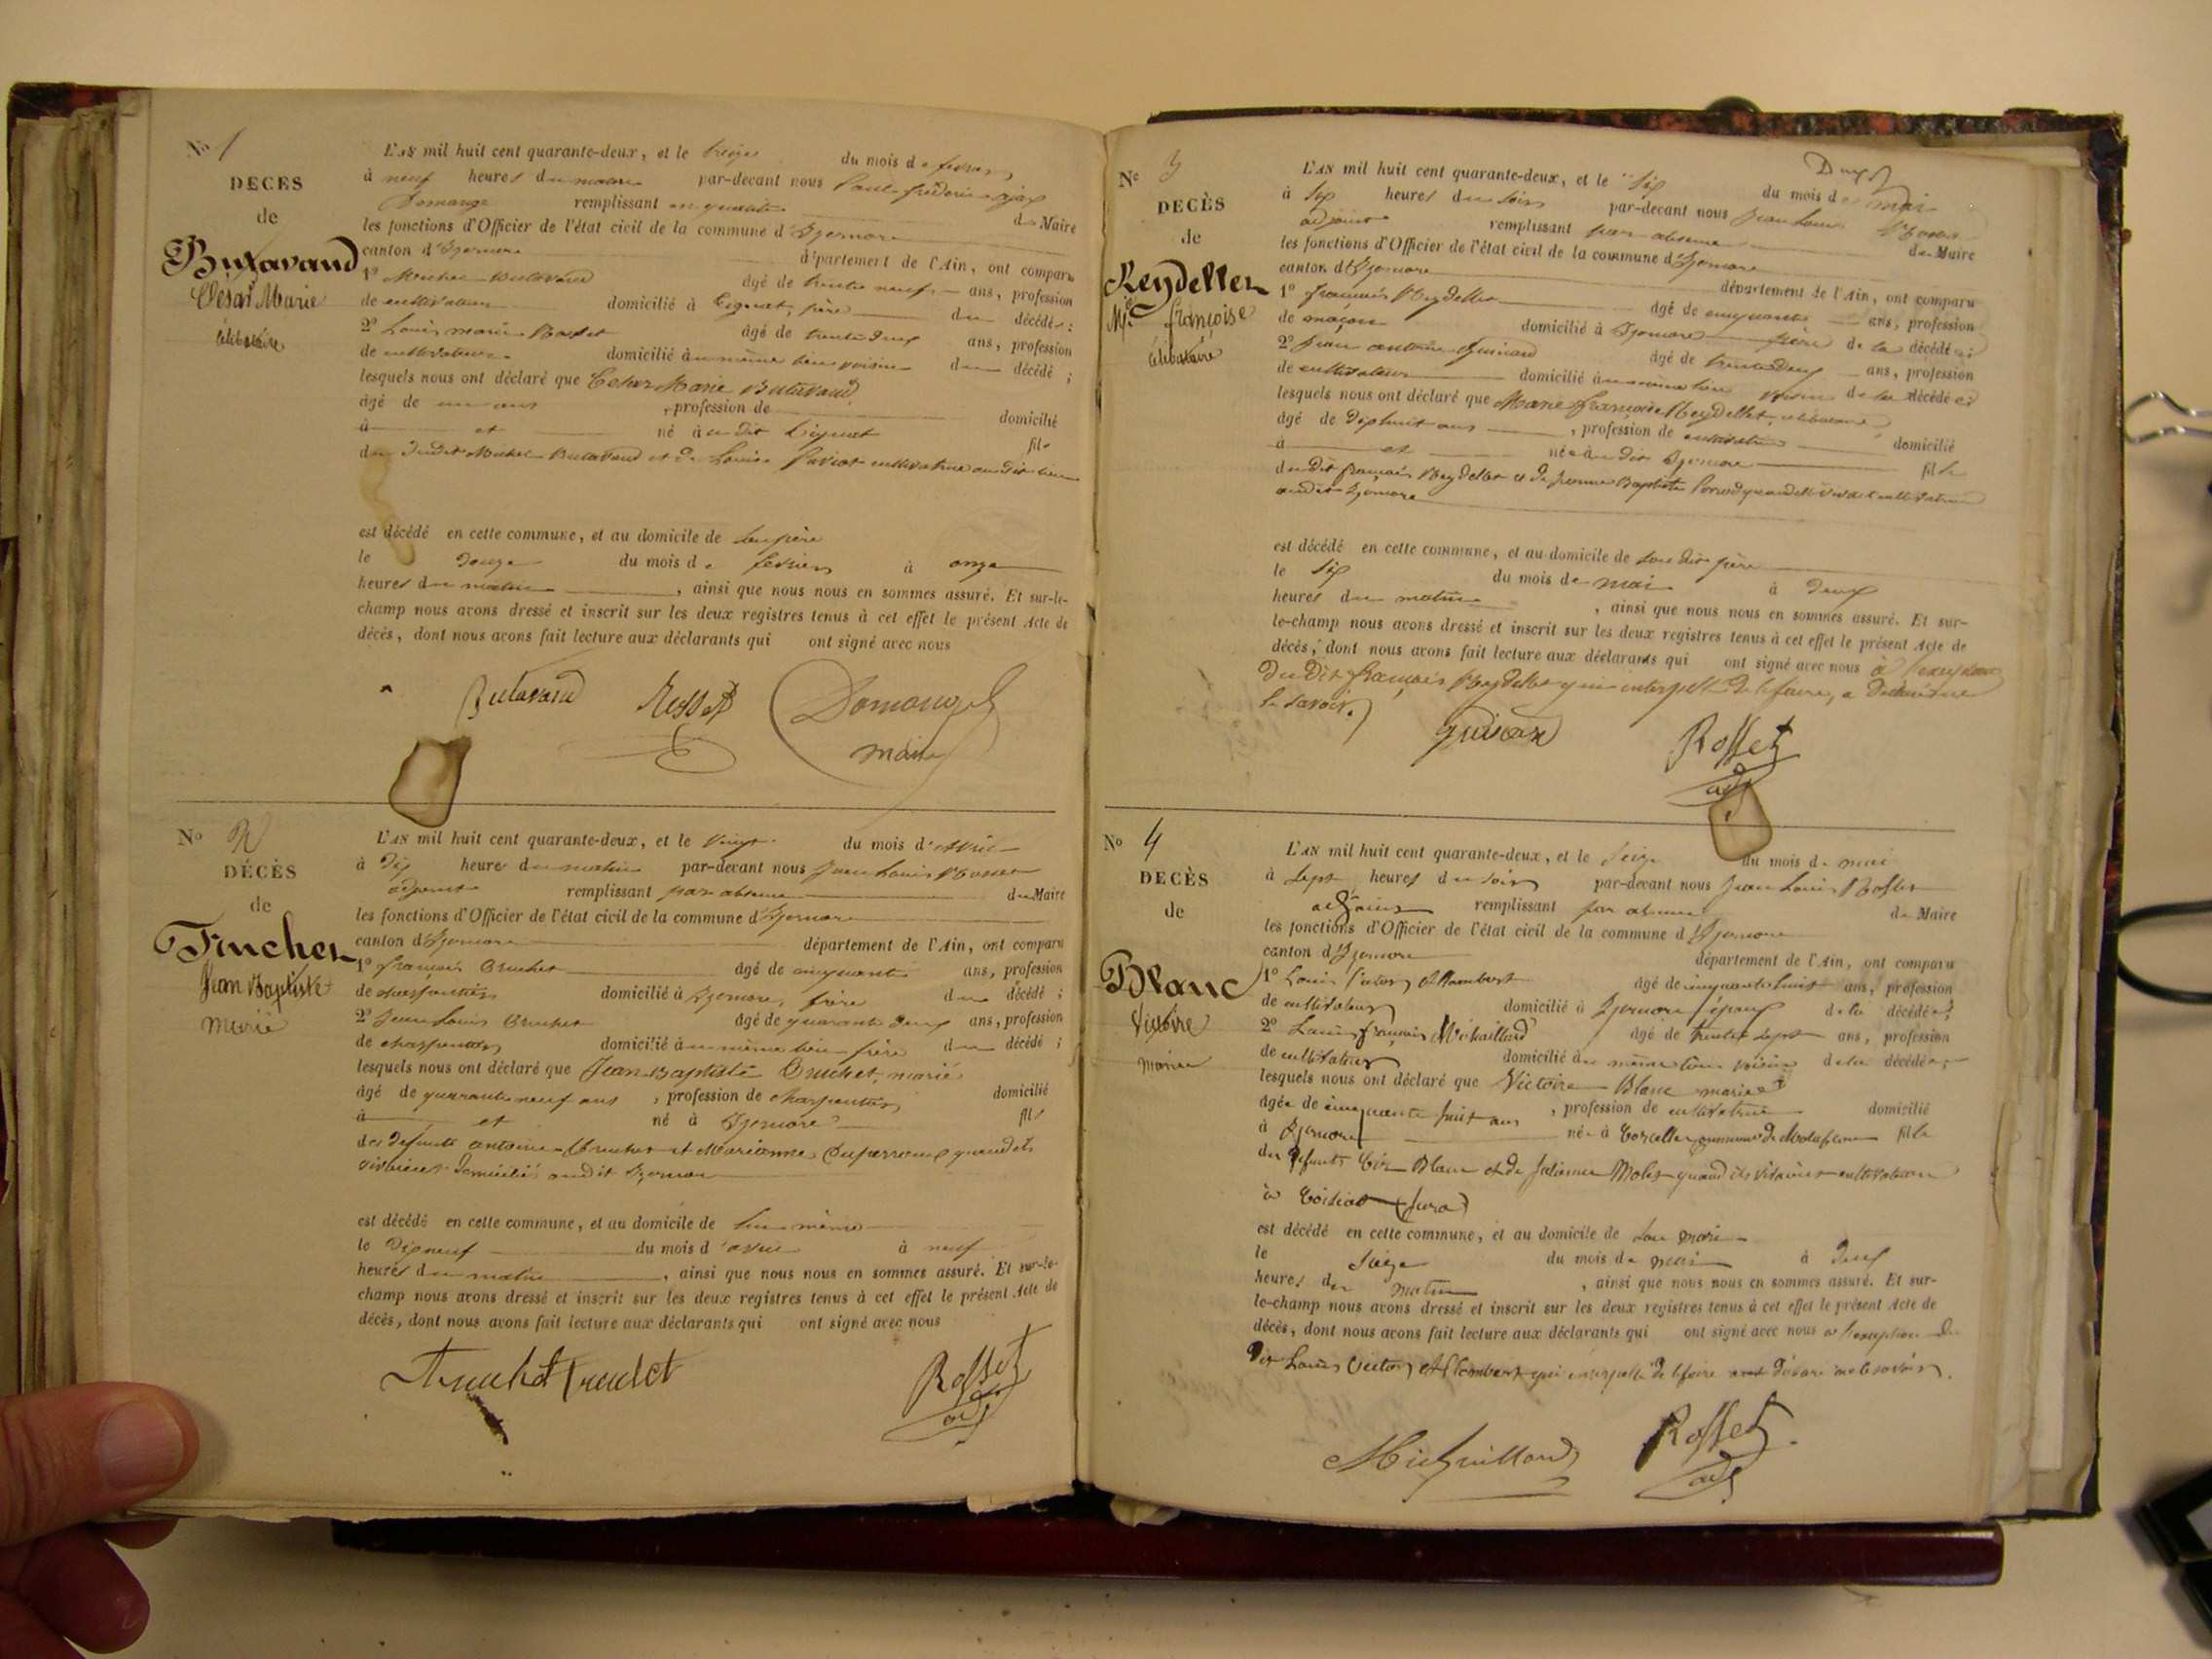 No 1
DECES
de
Butavand
César Marie
célibataire
L'AN mil huit cent quarante-deux, et le treize du mois de fevrier
à neuf heures du matin par-devant nous Paul frédéric ajax
Domange remplissant en qualité de Maire
les fonctions d'Officier de l'état civil de la commune d'Izernore
canton d'Izernore département de l'Ain, ont comparu
1º Michel Butavand âgé de trente neuf ans, profession
de cultivateur domicilié à Ceignat, père du décédé;
2º Louis marie Rosset âgé de trente deux ans, profession
de cultivateur domicilié au même lieu voisin du décédé;
lesquels nous ont déclaré que César Marie Butavand
âgé de un ans, profession de domicilié
à et né au dit Ceignat fils
du dudit Michel Butavand et de Louise cultivatrice au dit lieu
est décédé en cette commune, et au domicile de son père
le douze du mois de fevrier à onze
heures du matin, ainsi que nous nous en sommes assuré. Et sur-le-
champ nous avons dressé et inscrit sur les deux registres tenus à cet effet le présent Acte de
décès, dont nous avons fait lecture aux déclarants qui ont signé avec nous
Butavand Rosset Domange
maire
No 2
DÉCÈS
de
Truchet
Jean Baptiste
Marié
L'AN mil huit cent quarante-deux, et le vingt du mois d'avril
à dix heures du matin par-devant nous Jean Louis Rosset
adjoint remplissant par absence du Maire
les fonctions d'Officier de l'état civil de la commune d'Izernore
canton d'Izernore département de l'Ain, ont comparu
1º françois Truchet âgé de cinquante ans, profession
de charpentier domicilié à Izernore, frère du décédé;
2º Jean Louis Truchet âgé de quarante deux ans, profession
de charpentier domicilié au même lieu frère du décédé;
lesquels nous ont déclaré que Jean-Baptiste Truchet, marié
âgé de quarante neuf ans, profession de charpentier domicilié
à et né à Izernore fils
des défunts antoine Truchet et Marianne Duperroux quand ils
vivaient domiciliés audit Izernore
est décédé en cette commune, et au domicile de lui même
le dix neuf du mois d'avril à neuf
heures du matin, ainsi que nous nous en sommes assuré. Et sur-le-
champ nous avons dressé et inscrit sur les deux registres tenus à cet effet le présent Acte de
décès, dont nous avons fait lecture aux déclarants qui ont signé avec nous
Truchet Truchet Rosset
adj
No 3
DECÈS
de
Reydellet
Mie françoise
célibataire
L'AN mil huit cent quarante-deux, et le six du mois de mai
à six heures du soir par-devant nous Jean Louis Rosset
adjoint remplissant par absence du Maire
les fonctions d'Officier de l'état civil de la commune d'Izernore
canton d'Izernore département de l'Ain, ont comparu
1º françois Reydellet âgé de cinquante ans, profession
de maçon domicilié à Izernore père de la décédée;
2º Jean antoine Guinard âgé de trente deux ans, profession
de cultivateur domicilié au même lieu voisin de la décédée;
lesquels nous ont déclaré que Marie françoise Reydellet, célibataire,
âgé de dix huit ans, profession de cultivatrice domicilié
à et née au dit Izernore fille
du dit françois Reydellet et de Jeanne Baptiste quand elle vivait cultivatrice
audit Izernore
est décédé en cette commune, et au domicile de son dit père
le six du mois de mai à deux
heures du matin, ainsi que nous nous en sommes assuré. Et sur-
le-champ nous avons dressé et inscrit sur les deux registres tenus à cet effet le présent Acte de
décès, dont nous avons fait lecture aux déclarants qui ont signé avec nous à l'exception
du dit françois Reydellet qui interpellé de le faire, a déclaré ne
le savoir.
Rosset
adj
No 4
DECÈS
de
Blanc
Victoire
mariée
L'AN mil huit cent quarante-deux, et le seize du mois de mai
à sept heures du soir par-devant nous Jean Louis Rosset
adjoint remplissant par absence du Maire
les fonctions d'Officier de l'état civil de la commune d'Izernore
canton d'Izernore département de l'Ain, ont comparu
1º Louis Victor Allombert âgé de cinquante huit ans, profession
de cultivateur domicilié à Izernore époux de la décédée;
2º Louis françois Michaillard âgé de trente sept ans, profession
de cultivateur domicilié au même lieu voisin de la décédée;
lesquels nous ont déclaré que Victoire Blanc mariée
âgée de cinquante huit ans, profession de cultivatrice domicilié
à Izernore née à commune de fille
des défunts Blanc et de quand ils vivaient cultivateurs
à (Jura)
est décédé en cette commune, et au domicile de son mari
le seize du mois de mai à deux
heures du matin, ainsi que nous nous en sommes assuré. Et sur-
le-champ nous avons dressé et inscrit sur les deux registres tenus à cet effet le présent Acte de
décès, dont nous avons fait lecture aux déclarants qui ont signé avec nous à l'exception du
dit Louis Victor Allombert qui interpellé de le faire a déclaré ne le savoir.
Michaillard Rosset
adj